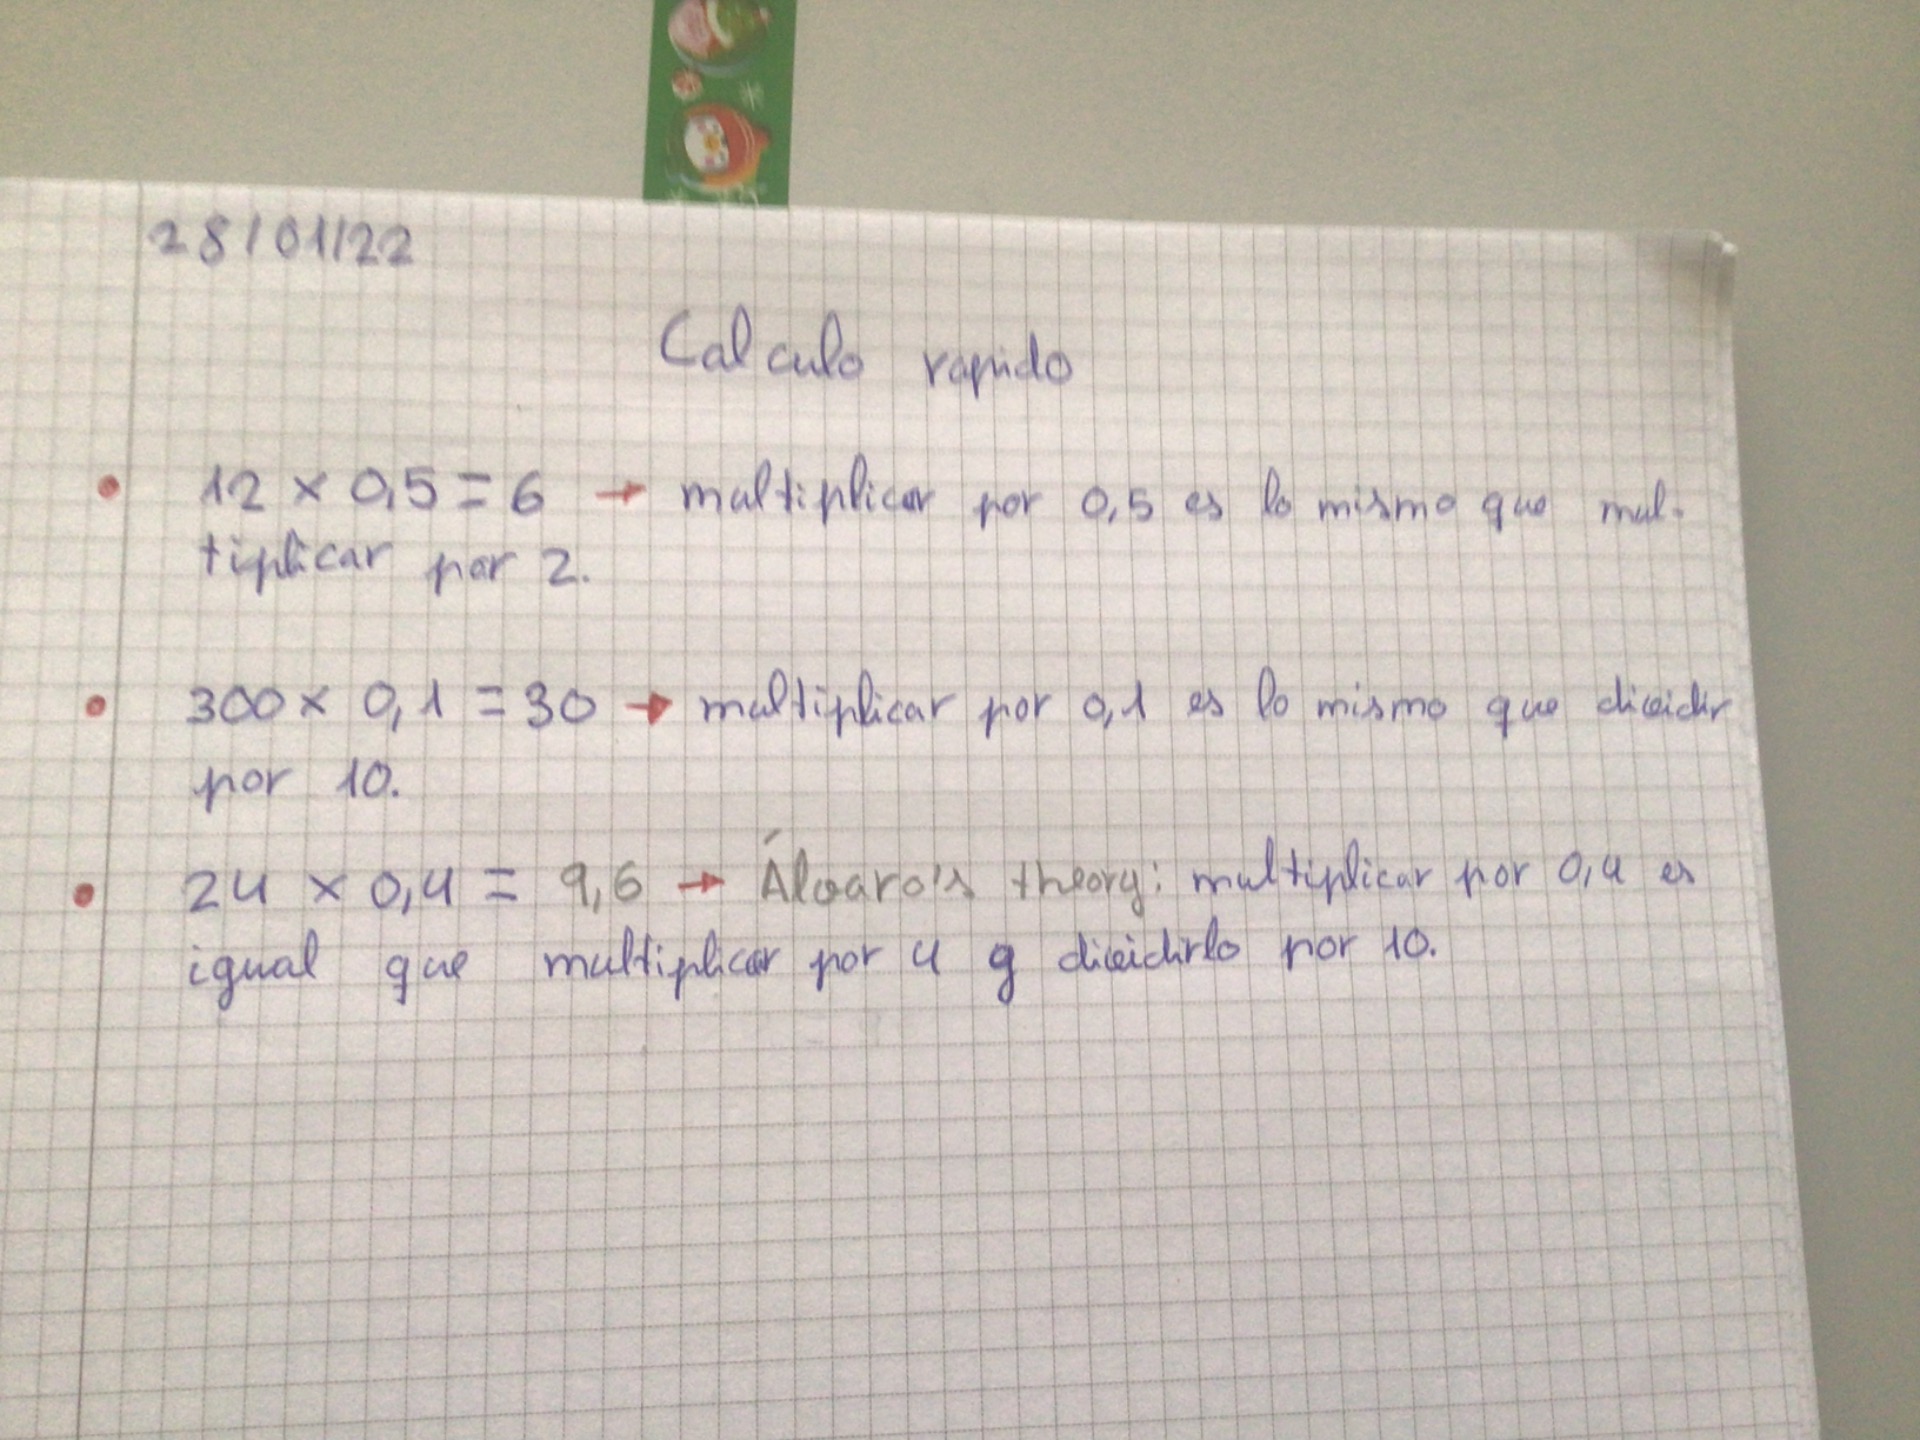 28/01/22
Calculo rapido
12 x 0,5 = 6 → multiplicar por 0,5 es lo mismo que mul-
tiplicar por 2.
300 x 0,1 = 30 → multiplicar por 0,1 es lo mismo que dividir
por 10.
24 x 0,4 = 9,6 → Álvaro's theory: multiplicar por 0,4 es
igual que multiplicar por 4 y dividirlo por 10.